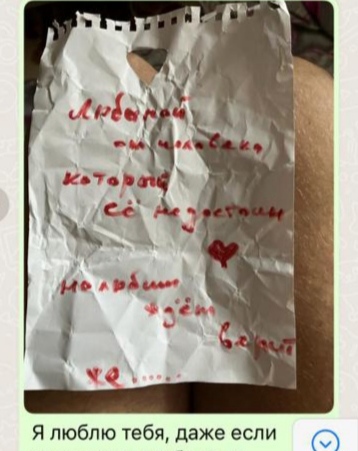 Любимой
от человека
который
её недостоин
но любит
ждёт
верит
же......
Я люблю тебя, даже если